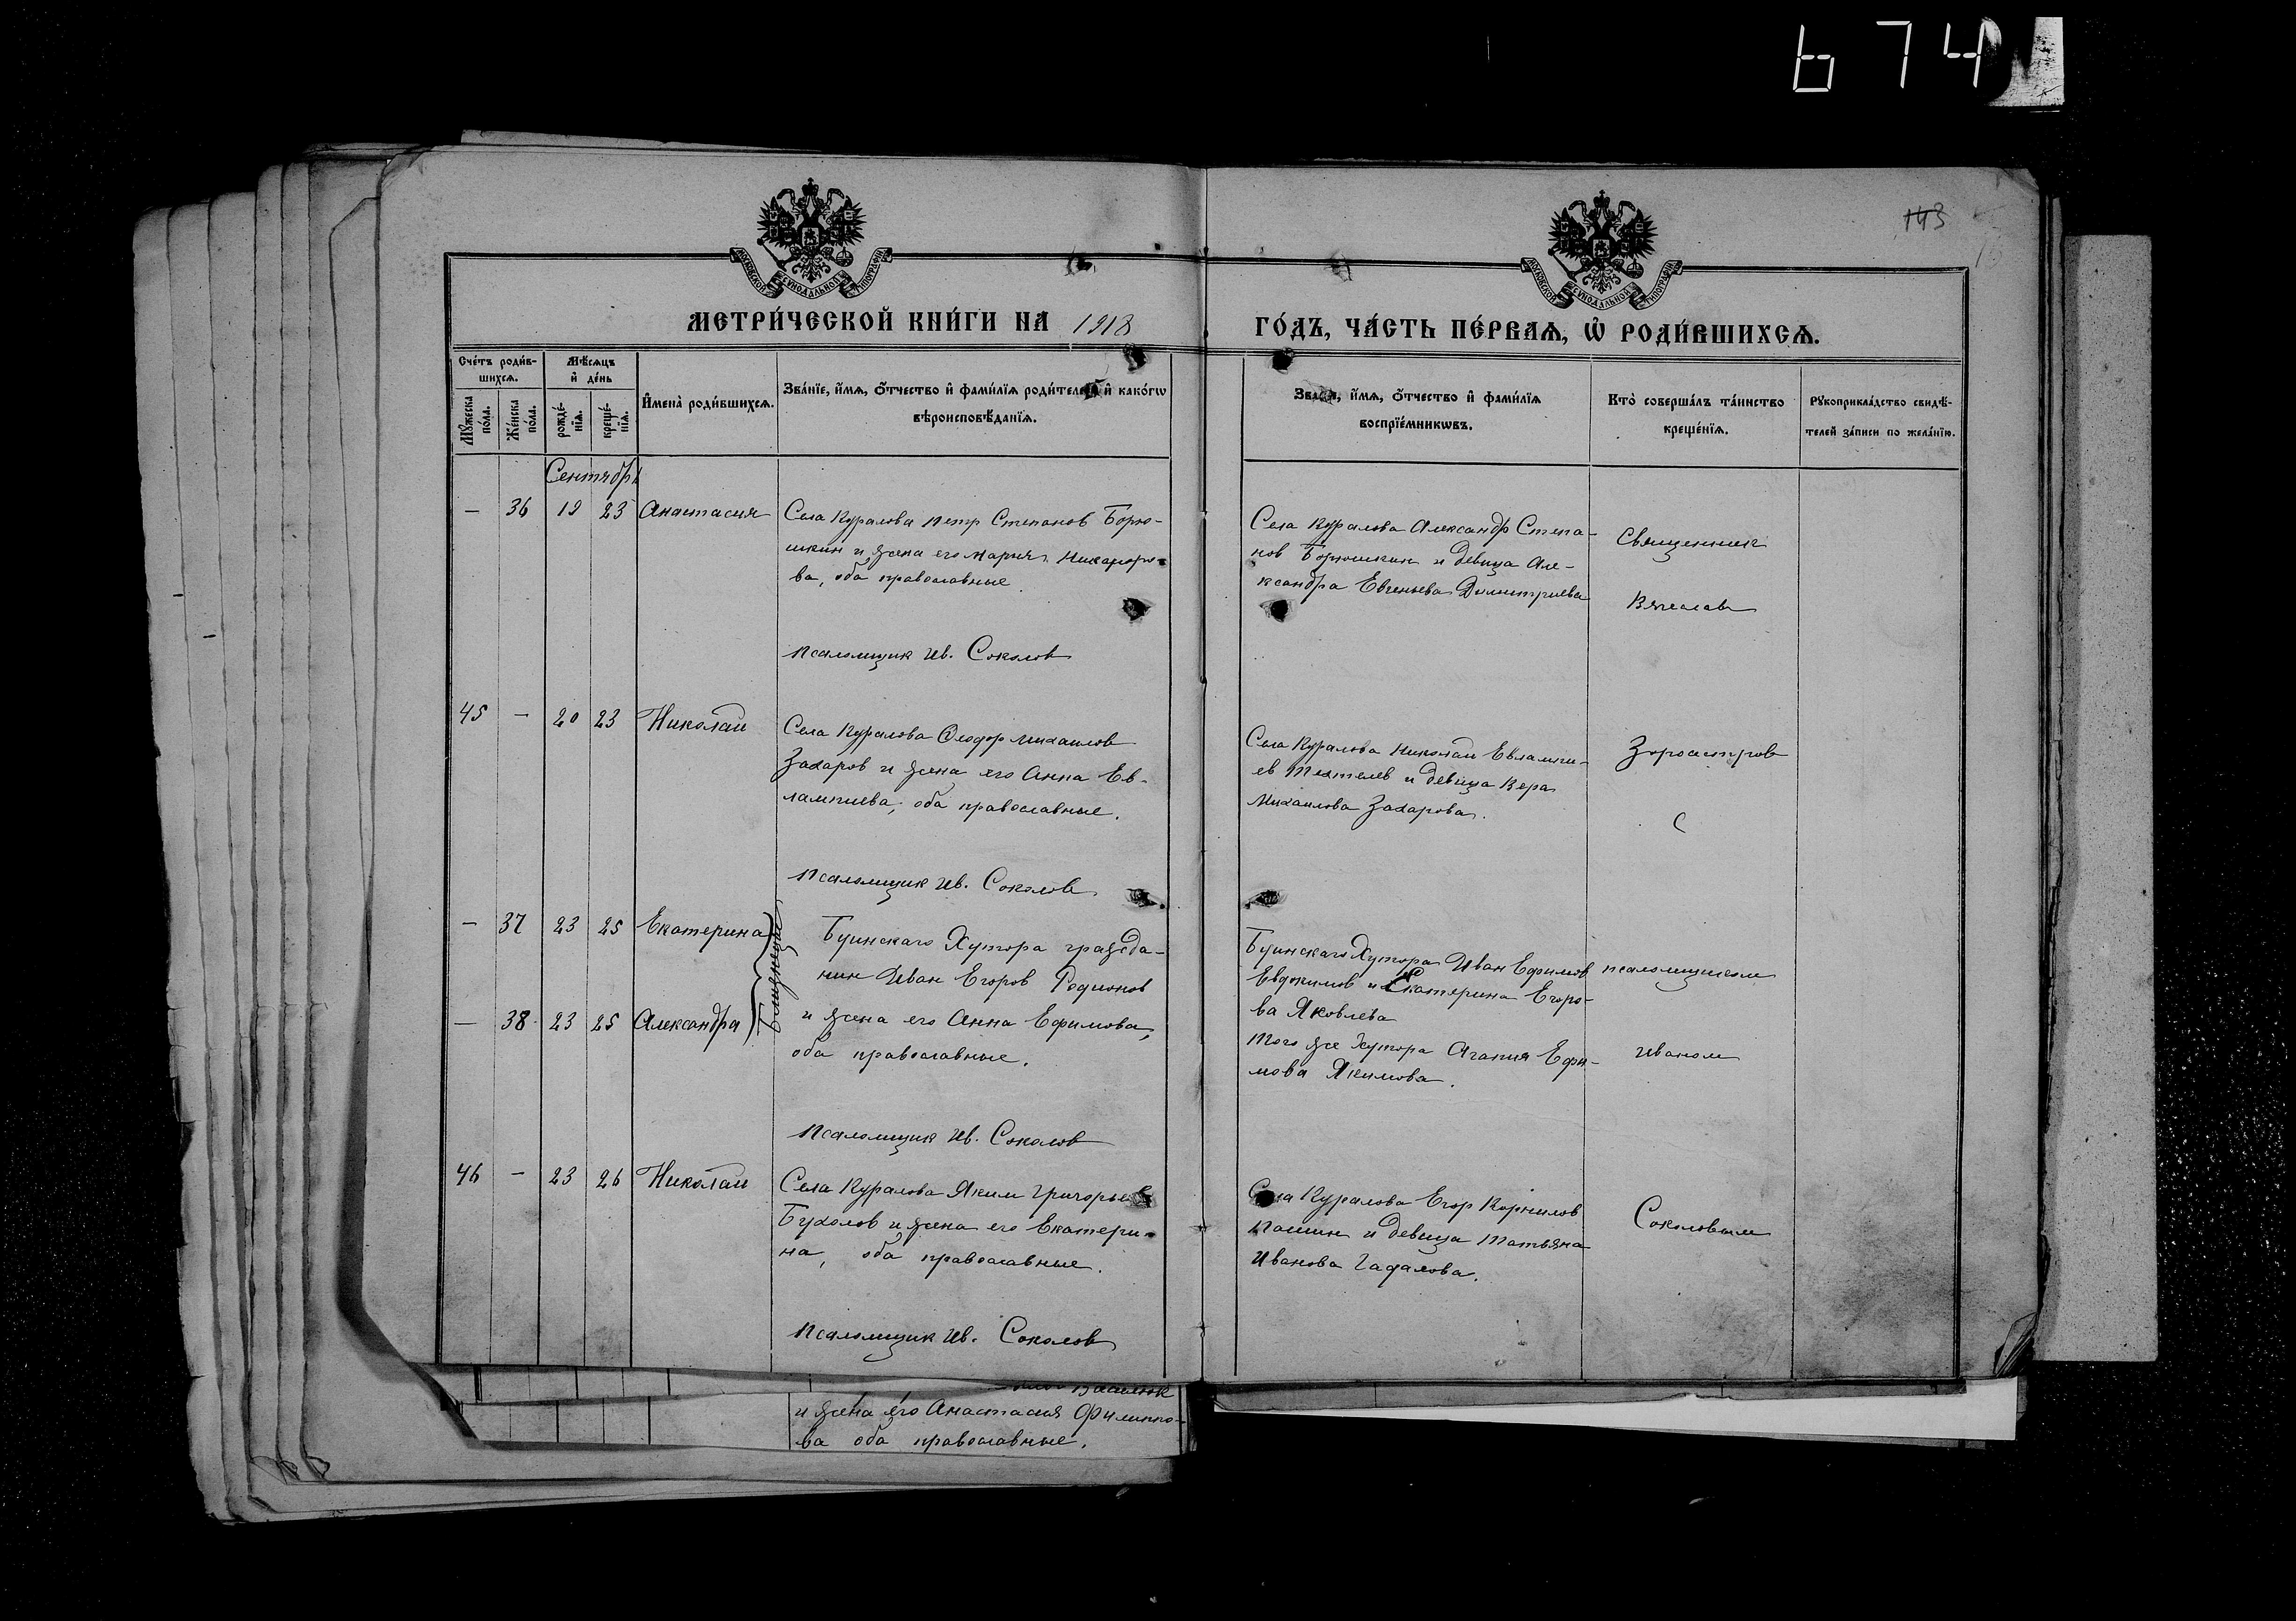 674
143
МОСКОВСКОЙ СУНОДАЛЬНОЙ ТИПОГРАФІИ
МОСКОВСКОЙ СУНОДАЛЬНОЙ ТИПОГРАФІИ
МЕТРИ́ЧЕСКОЙ КНИ́ГИ НА 1918 ГО́ДЪ, ЧА́СТЬ ПЕ́РВАѦ, Ѡ҆ РОДИ́ВШИХСѦ.
Сче́тъ роди́в-
шихсѧ.
Мꙋ́жеска по́ла.
Же́нска по́ла.
Мѣ́сѧцъ
и҆ де́нь
рожде́-
нїѧ.
креще́-
нїѧ.
И҆мена̀ роди́вшихсѧ.
Зва́нїе, и҆́мѧ, ѻ҆́тчество и҆ фами́лїѧ роди́телей и҆ како́гѡ
вѣроисповѣ́данїѧ.
Зва́нїе, и҆́мѧ, ѻ҆́тчество и҆ фами́лїѧ
воспрїе́мникѡвъ.
Кто̀ соверша́лъ та́инство
креще́нїѧ.
Рꙋкоприкла́дство свидѣ́-
телей за́писи по жела́нїю.
Сентябрь
— 36 19 23 Анастасия
Села Куралова Петр Степанов Борю-
шкин и жена его Мария Никаноро-
ва, оба православные
Псаломщик Ив. Соколов
Села Куралова Александр Степа-
нов Борюшкин и девица Але-
ксандра Евгеньева Димитриева
Священник
Вячеслав
45 — 20 23 Николай
Села Куралова Феодор Михаилов
Захаров и жена его Анна Ев-
лампиева, оба православные.
Псаломщик Ив. Соколов
Села Куралова Николай Евлампи-
ев и девица Вера
Михаилова Захарова.
Зороастров
с
— 37 23 25 Екатерина
— 38 23 25 Александра
Близнецы
Буинскаго Хутора гражда-
нин Иван Егоров Родионов
и жена его Анна Ефимова,
оба православные.
Псаломщик Ив. Соколов
Буинскаго Хутора Иван Ефимов
Евдокимов и Екатерина Егоро-
ва Яковлева
Того же Хутора Агапия Ефи-
мова Якимова.
псаломщиком
Иваном
46 — 23 26 Николай
Села Куралова Яким Григорьев
Бухалов и жена его Екатери-
на, оба православные.
Псаломщик Ив. Соколов
Села Куралова Егор Корнилов
Пашин и девица Татьяна
Иванова Гадалова.
Соколовым
и жена его Анастасия Филиппо-
ва оба православные.